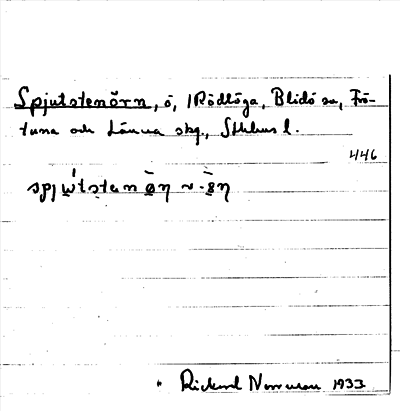 Spjutstenörn, ö, i Rödlöga, Blidö sn, Frö-
tuna och Länna skg., Sthlms l.
446
spjw̩̍tstan ø̄η ~ -ȣ̄η
Rickard Norrman 1933